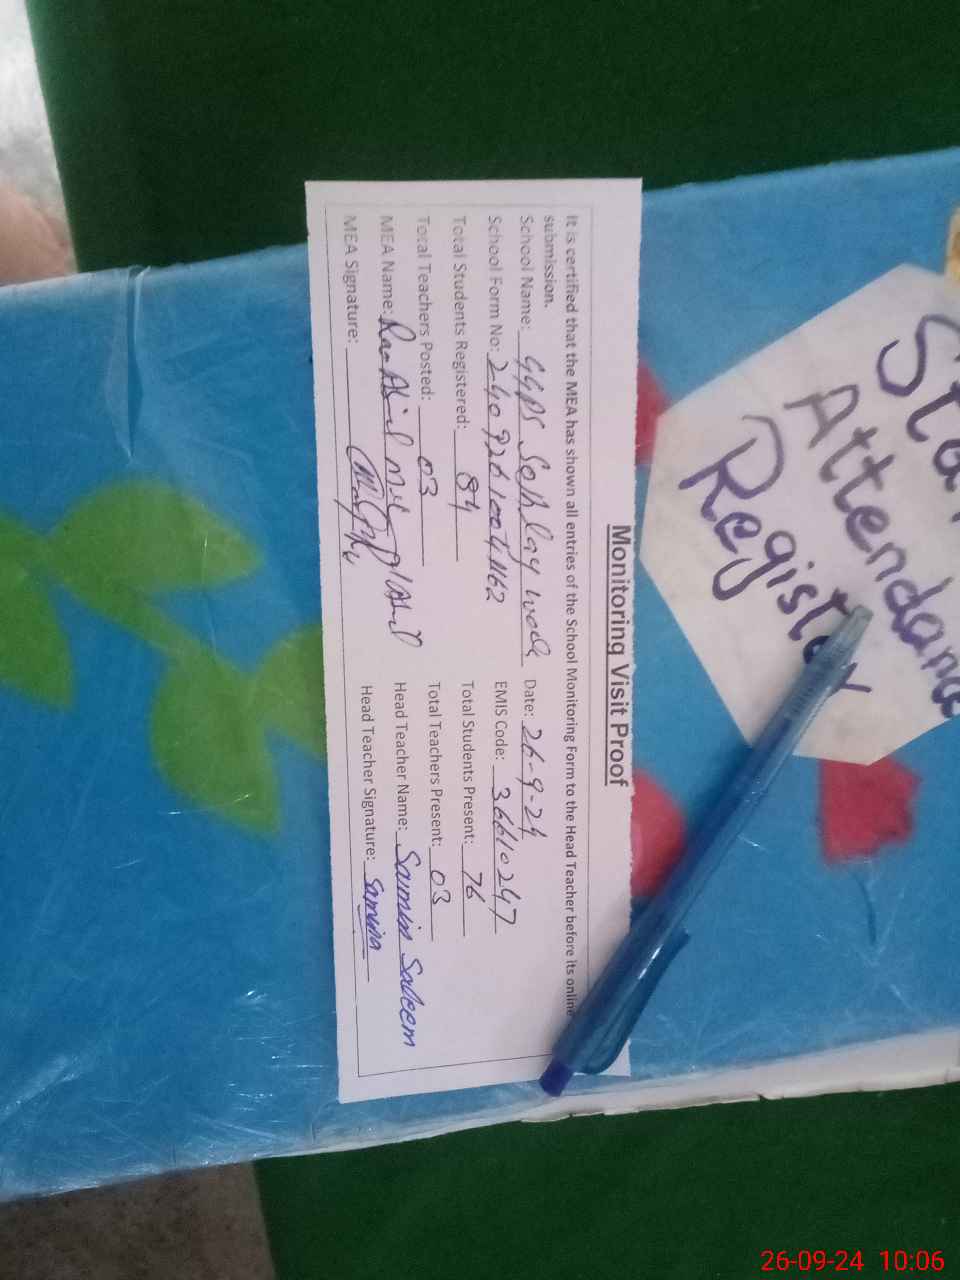 Monitoring Visit Proof
It is certified that the MEA has shown all entries of the School Monitoring Form to the Head Teacher before its online
submission.
School Name: GGPS Sohlay wala Date: 26-9-24
School Form No: EMIS Code: 36610247
Total Students Registered: 84 Total Students Present: 76
Total Teachers Posted: 03 Total Teachers Present: 03
MEA Name: Head Teacher Name: Saleem
MEA Signature: Head Teacher Signature: Samina
Attendance
Register
26-09-24 10:06